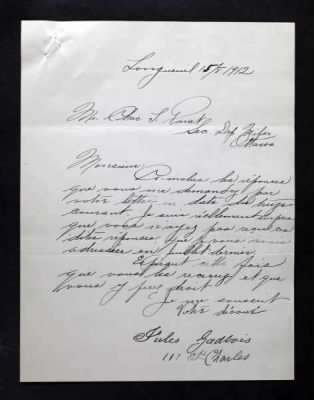 Longueuil 15/8 1912
Mr Chas
Sec Dep
Ottawa
Monsieur,
Ci-inclus les réponses
que vous me demandez par
votre lettre en date du
courant. Je suis réellement
que vous n'ayez pas reçu
dites réponses, que je vous
adressées en juillet dernier
Espérant cette fois
que vous les recevrez et que
vous y ferez droit
Je me souscris
Votre dévoué
Jules Gadbois
St Charles